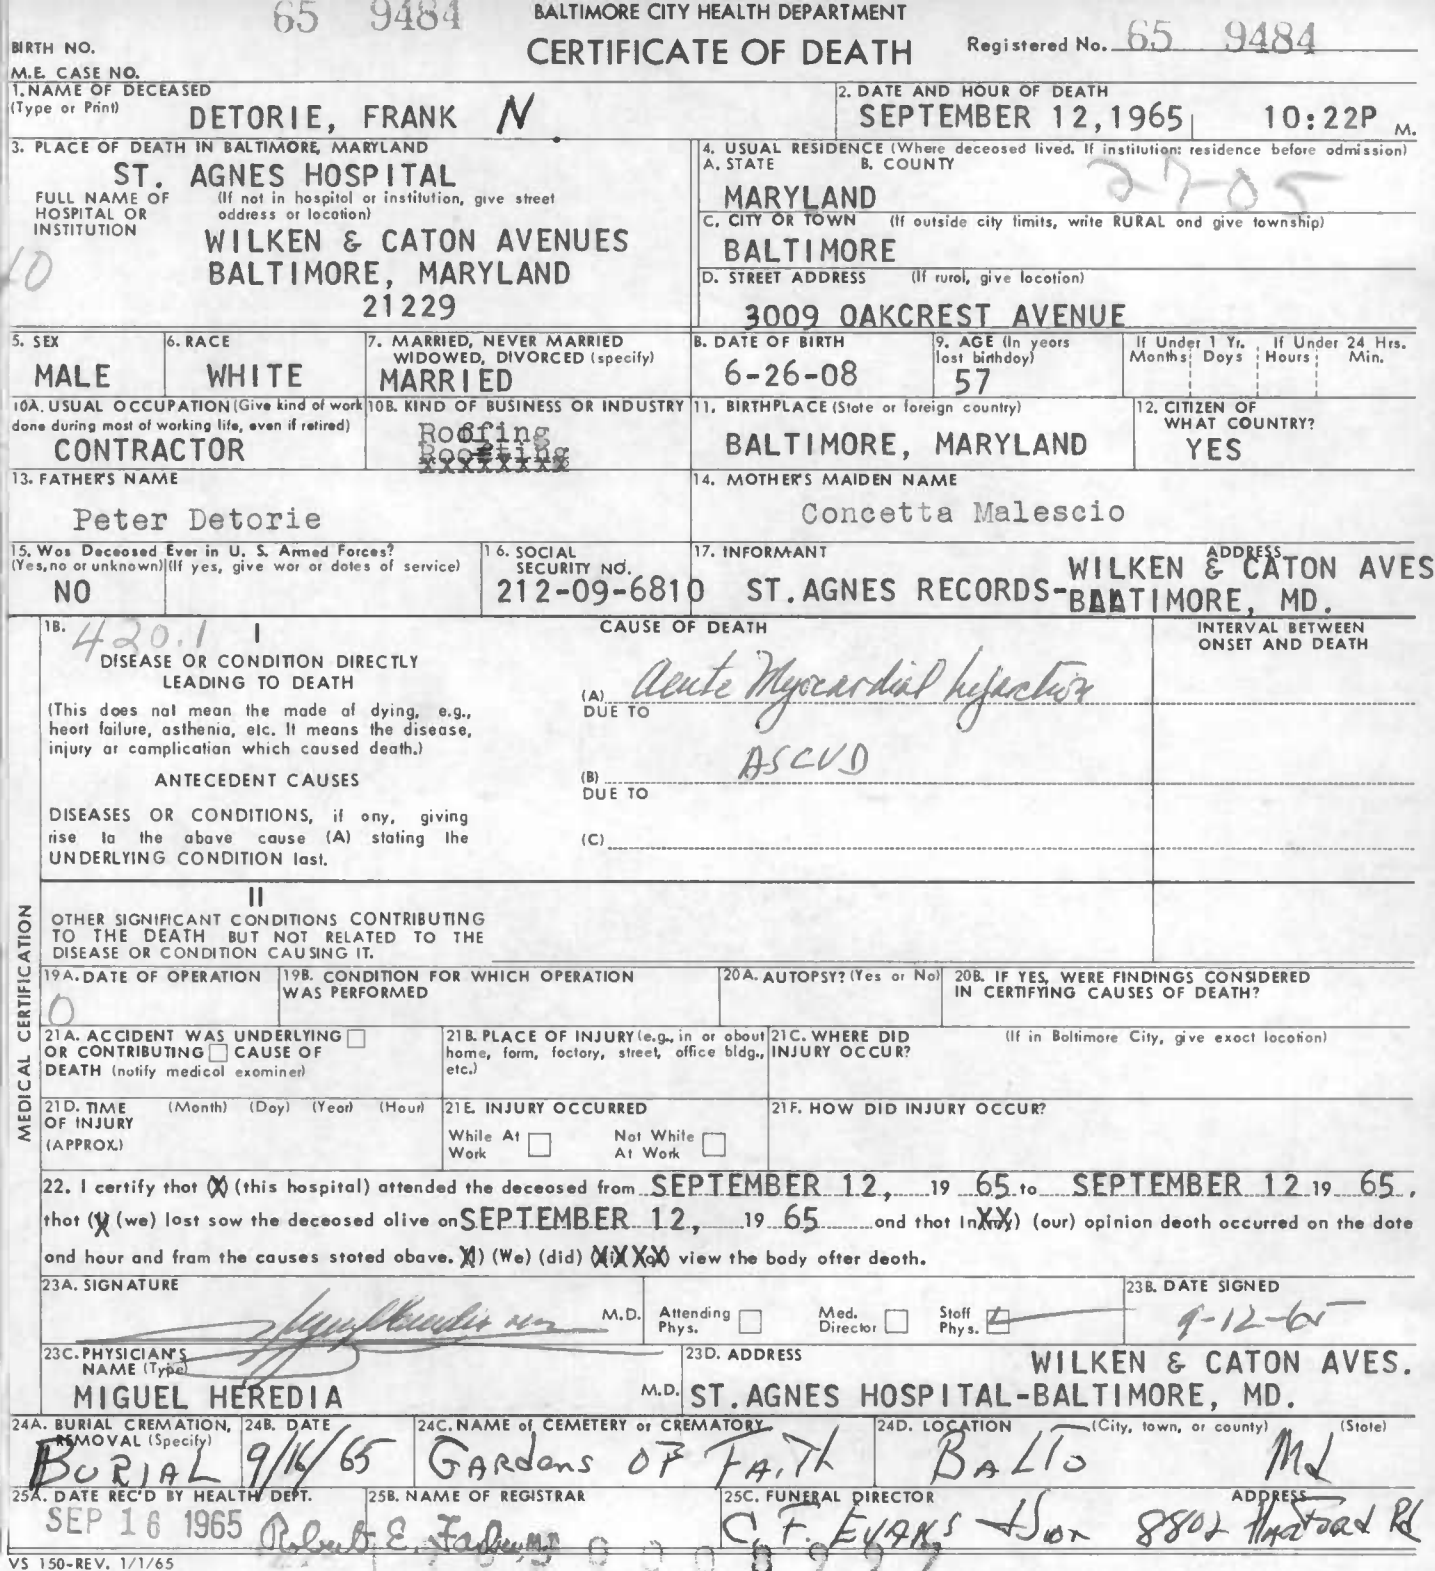 65 9484
BALTIMORE CITY HEALTH DEPARTMENT
BIRTH NO.
CERTIFICATE OF DEATH
Registered No. 65 9484
M.E. CASE NO.
1. NAME OF DECEASED
(Type or Print)
DETORIE, FRANK N.
2. DATE AND HOUR OF DEATH
SEPTEMBER 12, 1965 10:22P M.
3. PLACE OF DEATH IN BALTIMORE, MARYLAND
ST. AGNES HOSPITAL
FULL NAME OF HOSPITAL OR INSTITUTION
(If not in hospital or institution, give street address or location)
WILKEN & CATON AVENUES
BALTIMORE, MARYLAND
21229
10
4. USUAL RESIDENCE (Where deceased lived. If institution: residence before admission)
A. STATE B. COUNTY
27-05
MARYLAND
C. CITY OR TOWN (If outside city limits, write RURAL and give township)
BALTIMORE
D. STREET ADDRESS (If rural, give location)
3009 OAKCREST AVENUE
5. SEX
MALE
6. RACE
WHITE
7. MARRIED, NEVER MARRIED
WIDOWED, DIVORCED (specify)
MARRIED
8. DATE OF BIRTH
6-26-08
9. AGE (In years last birthday)
57
If Under 1 Yr. If Under 24 Hrs.
Months Days Hours Min.
10A. USUAL OCCUPATION (Give kind of work
done during most of working life, even if retired)
CONTRACTOR
10B. KIND OF BUSINESS OR INDUSTRY
Roofing
11. BIRTHPLACE (State or foreign country)
BALTIMORE, MARYLAND
12. CITIZEN OF
WHAT COUNTRY?
YES
13. FATHER'S NAME
Peter Detorie
14. MOTHER'S MAIDEN NAME
Concetta Malescio
15. Was Deceased Ever in U. S. Armed Forces?
(Yes, no or unknown) (If yes, give war or dates of service)
NO
16. SOCIAL
SECURITY NO.
212-09-6810
17. INFORMANT ADDRESS
WILKEN & CATON AVES
ST. AGNES RECORDS-BAATIMORE, MD.
MEDICAL CERTIFICATION
18. 420.1 I
CAUSE OF DEATH
INTERVAL BETWEEN
ONSET AND DEATH
DISEASE OR CONDITION DIRECTLY
LEADING TO DEATH
(This does not mean the mode of dying, e.g.,
heart failure, asthenia, etc. It means the disease,
injury or complication which caused death.)
(A) Acute Myocardial Infarction
DUE TO
ANTECEDENT CAUSES
(B) ASCVD
DUE TO
DISEASES OR CONDITIONS, if any, giving
rise to the above cause (A) stating the
UNDERLYING CONDITION last.
(C)
II
OTHER SIGNIFICANT CONDITIONS CONTRIBUTING
TO THE DEATH BUT NOT RELATED TO THE
DISEASE OR CONDITION CAUSING IT.
19A. DATE OF OPERATION
0
19B. CONDITION FOR WHICH OPERATION
WAS PERFORMED
20A. AUTOPSY? (Yes or No)
20B. IF YES, WERE FINDINGS CONSIDERED
IN CERTIFYING CAUSES OF DEATH?
21A. ACCIDENT WAS UNDERLYING
OR CONTRIBUTING CAUSE OF
DEATH (notify medical examiner)
21B. PLACE OF INJURY (e.g., in or about
home, farm, factory, street, office bldg.,
etc.)
21C. WHERE DID (If in Baltimore City, give exact location)
INJURY OCCUR?
21D. TIME (Month) (Day) (Year) (Hour)
OF INJURY
(APPROX.)
21E. INJURY OCCURRED
While At Work Not While At Work
21F. HOW DID INJURY OCCUR?
22. I certify that (X) (this hospital) attended the deceased from SEPTEMBER 12, 19 65 to SEPTEMBER 12 19 65,
that (X) (we) last saw the deceased alive on SEPTEMBER 12, 19 65 and that in XX) (our) opinion death occurred on the date
and hour and from the causes stated above. X) (We) (did) (XXXX) view the body after death.
23A. SIGNATURE
M.D. Attending Phys. Med. Director Staff Phys.
23B. DATE SIGNED
9-12-65
23C. PHYSICIAN'S
NAME (Type)
MIGUEL HEREDIA M.D.
23D. ADDRESS
WILKEN & CATON AVES.
ST. AGNES HOSPITAL-BALTIMORE, MD.
24A. BURIAL CREMATION,
REMOVAL (Specify)
BURIAL
24B. DATE
9/16/65
24C. NAME of CEMETERY or CREMATORY
GARDENS OF FAITH
24D. LOCATION (City, town, or county) (State)
BALTO Md
25A. DATE REC'D BY HEALTH DEPT.
SEP 16 1965
25B. NAME OF REGISTRAR
Robert E. Farber M.D.
25C. FUNERAL DIRECTOR ADDRESS
C. F. EVANS & Son 8802 Harford Rd
VS 150-REV. 1/1/65